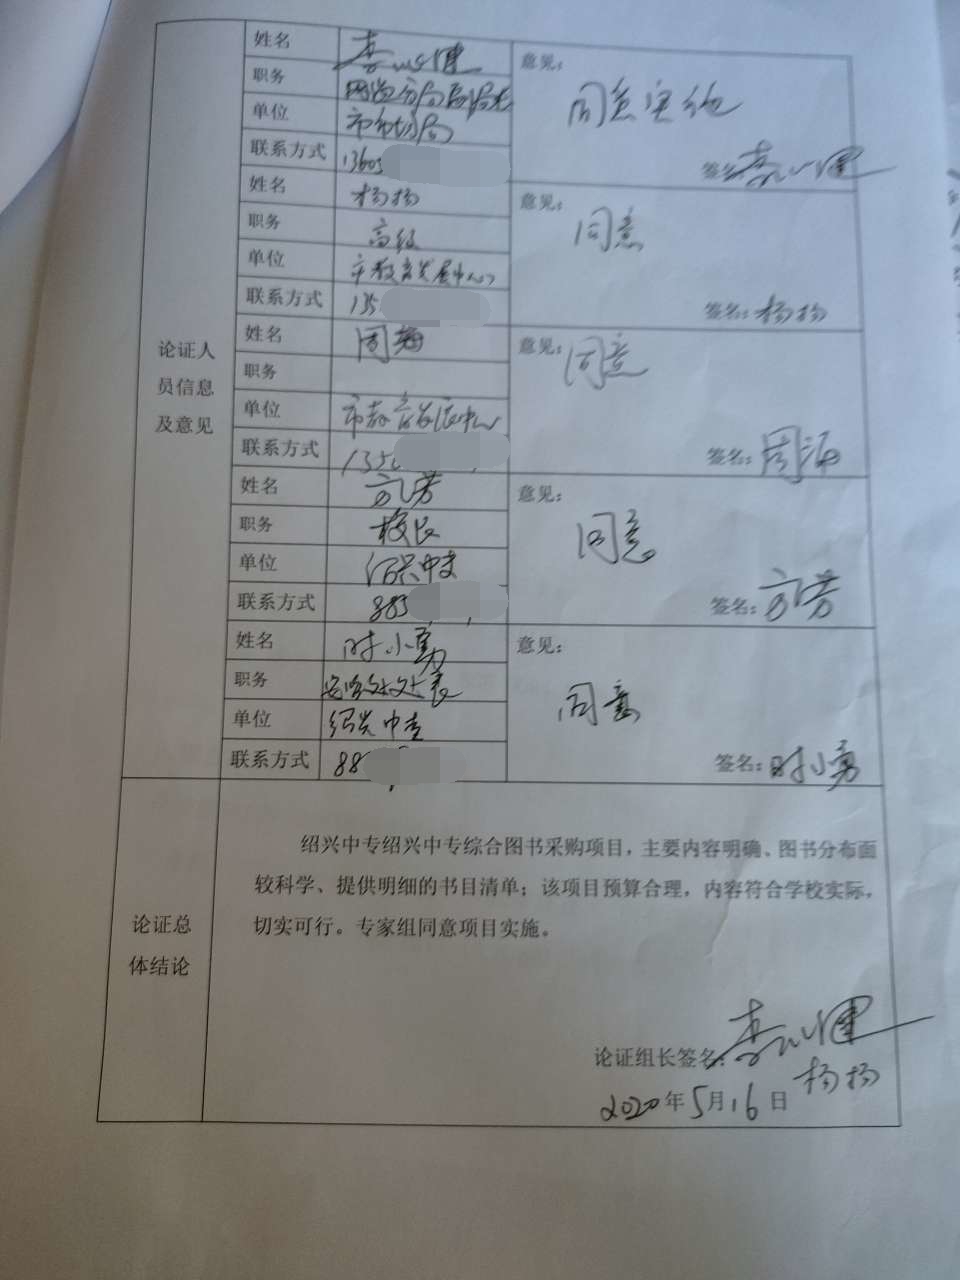 姓名
职务
单位
联系方式 13605
意见：
同意实施
签名：
姓名 杨扬
职务 高级
单位 市教育发展中心
联系方式 135
意见：
同意
签名：杨扬
论证人
员信息
及意见
姓名 周海
职务
单位 市教育发展中心
联系方式 135
意见：
同意
签名：周海
姓名
职务 校长
单位 绍兴中专
联系方式 883
意见：
同意
签名：
姓名 时小勇
职务
单位 绍兴中专
联系方式 88
意见：
同意
签名：时小勇
论证总
体结论
绍兴中专绍兴中专综合图书采购项目，主要内容明确、图书分布面
较科学、提供明细的书目清单；该项目预算合理，内容符合学校实际，
切实可行。专家组同意项目实施。
论证组长签名：
杨扬
2020年5月16日